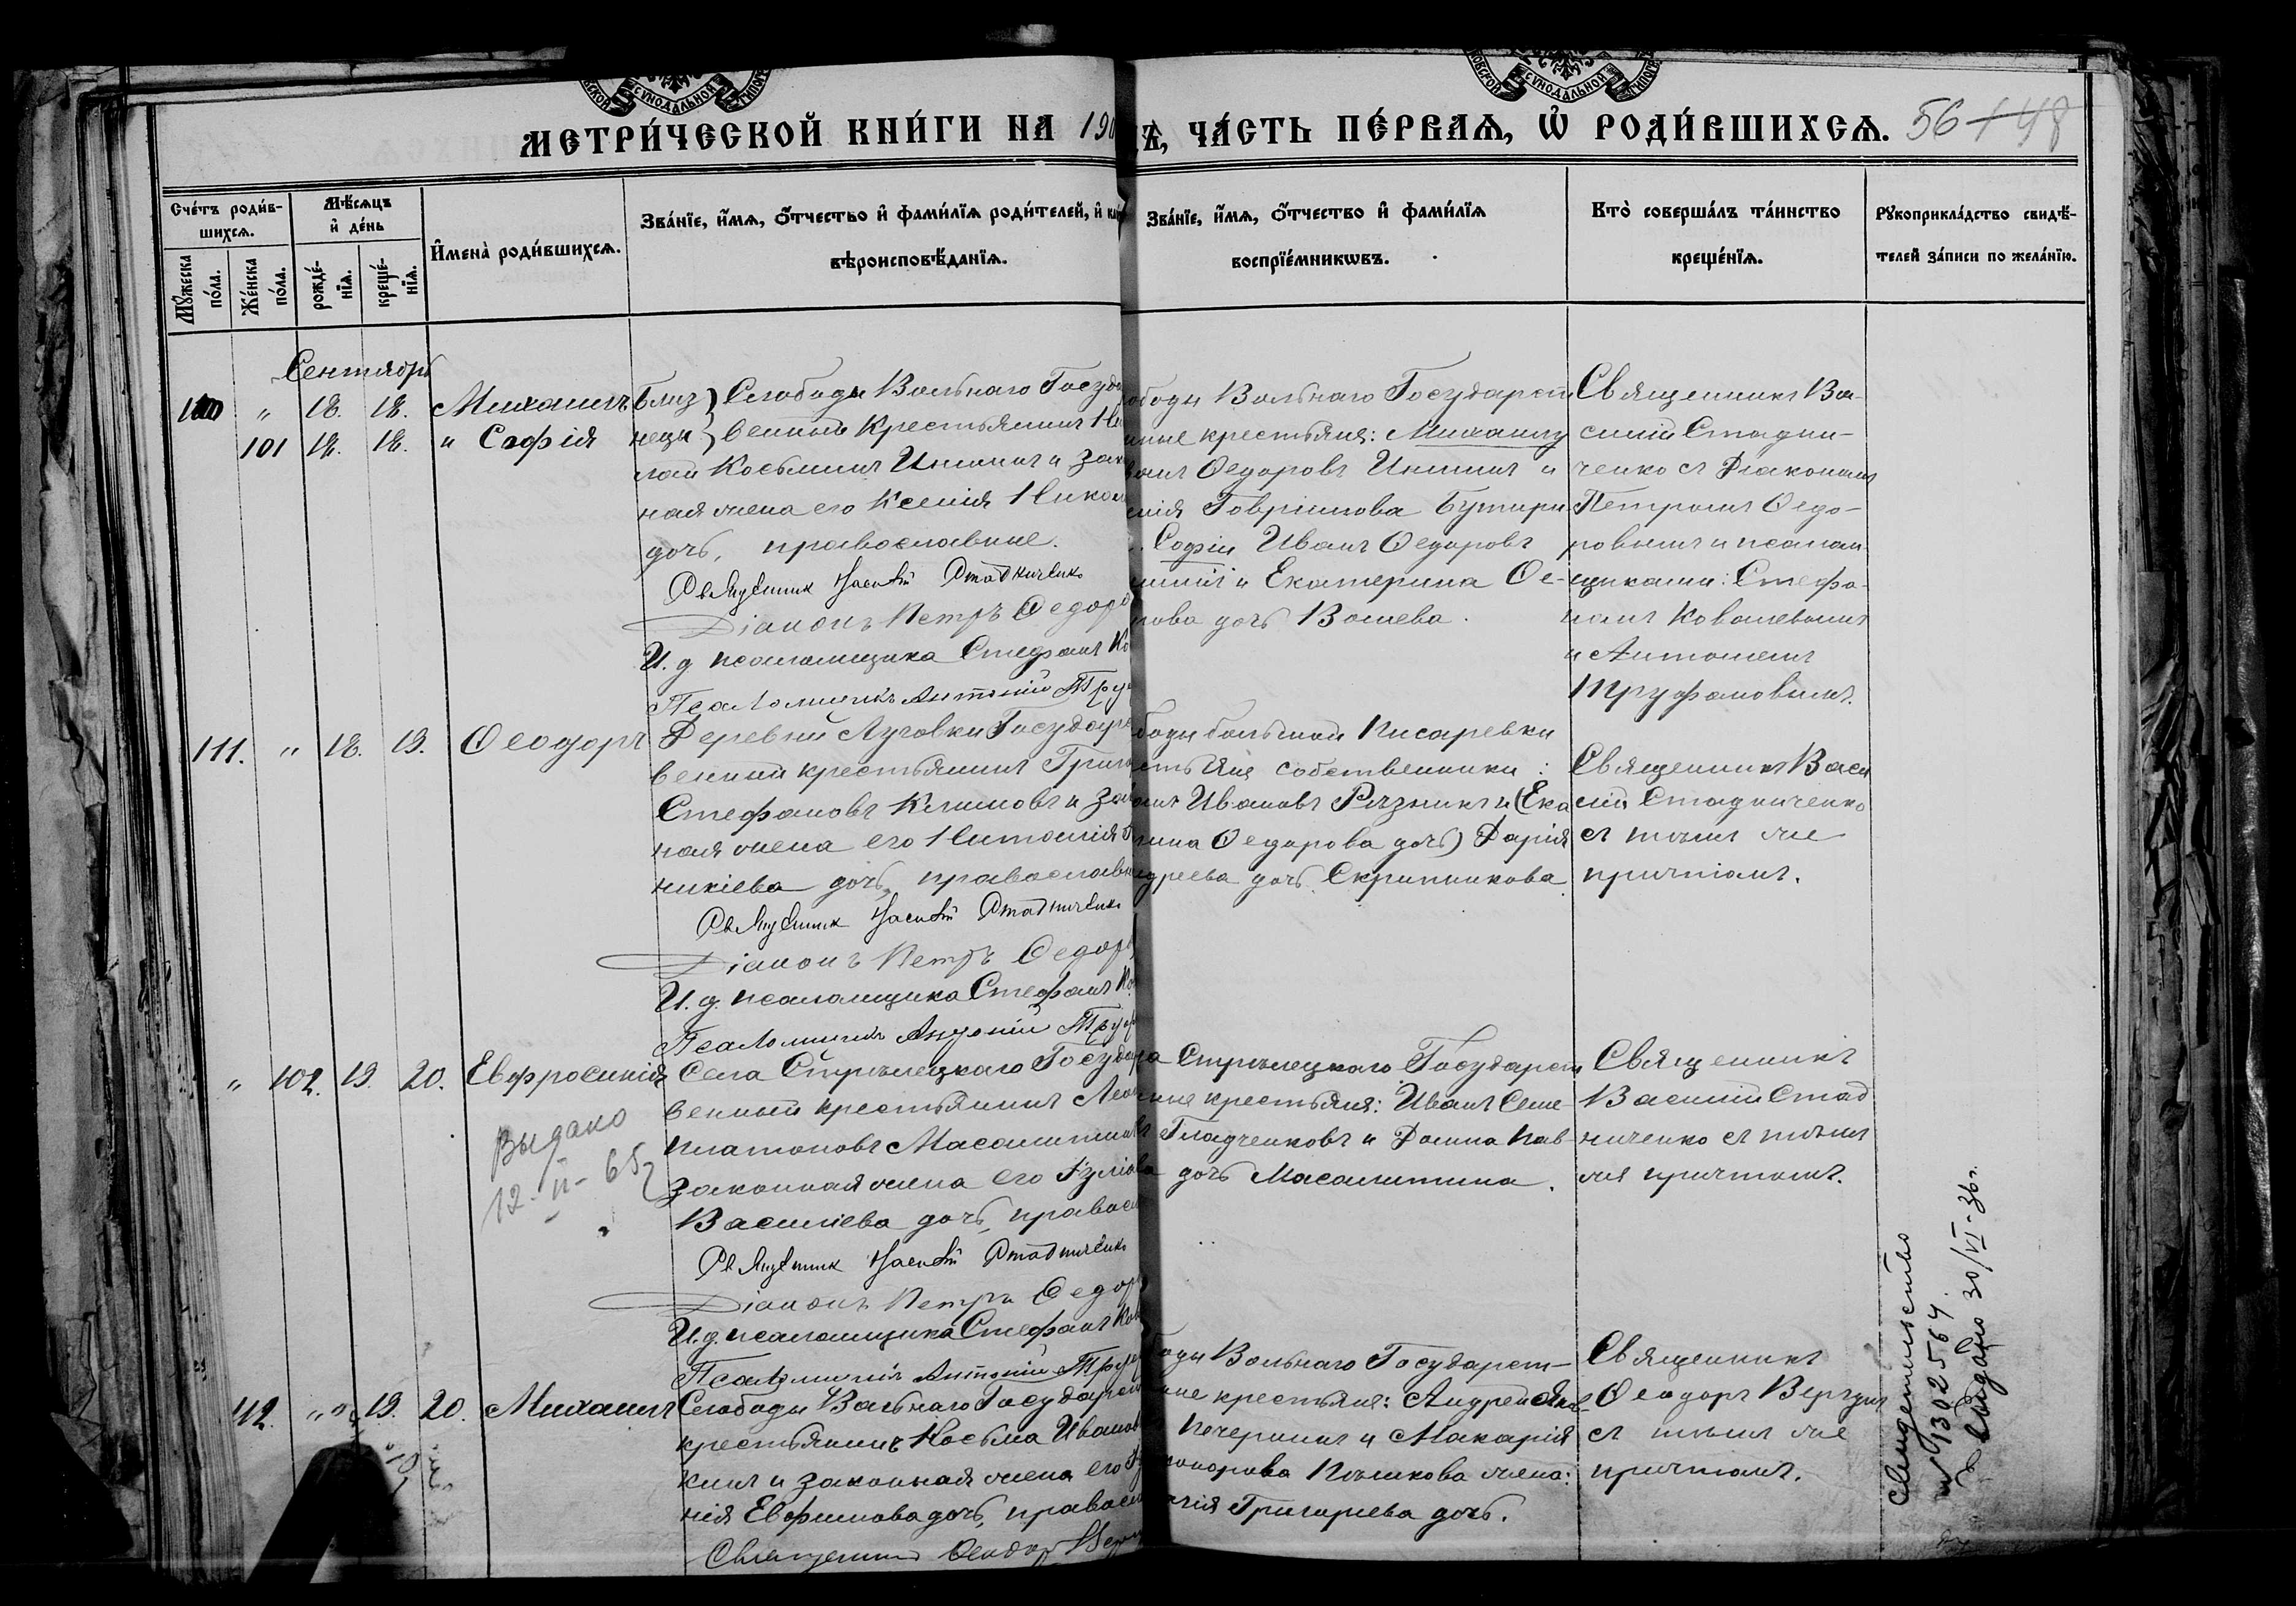 МЕТРИ́ЧЕСКОЙ КНИ́ГИ НА 190
Ѣ, ЧА́СТЬ ПЕ́РВАѦ, Ѿ РОДИ́ВШИХСѦ. 56 48
Сче́тъ роди́в-
шихсѧ.
Мѣ́сѧцъ
и҆ де́нь
И҆мена̀ роди́вшихсѧ.
Зва́нїе, и҆́мѧ, ѻ҆́тчество и҆ фами́лїѧ роди́телей, и҆
вѣроисповѣ́данїѧ.
Зва́нїе, и҆́мѧ, ѻ҆́тчество и҆ фами́лїѧ
воспрїе́мникѡвъ.
Кто̀ соверша́лъ та́инство
креще́нїѧ.
Рꙋкоприкла́дство свидѣ́-
телей за́писи по жела́нїю.
Мꙋ́жеска
по́ла.
Же́нска
по́ла.
рожде́-
нїѧ.
креще́-
нїѧ.
Сентябрь
" 18. 18. Михаилъ
101 18. 18. " Софія
Близ
нецы
Слободы Вольнаго Госуда
венный крестьянинъ Ни
лай Косьминъ Инишинъ и зак
ная жена его Ксенія Никол
дочь, православные.
Священник Василій Стадниченко
Діаконъ Петръ Ѳедоро
И. д. псаломщика Стефанъ Ко
Псаломщикъ Антоній Тру
ободы Вольнаго Государст
нные крестьяне: Михаилу
ванъ Ѳедоровъ Инишин и
сенія Говріилова Бутири
Софіи Иванъ Ѳедоровъ
и Екатерина Ѳе-
рова дочь
Священникъ Ва-
силій Стадни-
ченко съ Діакономъ
Петромъ Ѳедо-
ровымъ и псалом-
щиками: Стефа-
номъ Ковалевымъ
и Антоніемъ
Труфановымъ.
111. " 18. 19. Ѳеодоръ
Деревни Луговки Государс
венный крестьянинъ Григо
Стефановъ Климовъ и зак
ная жена его
дочь, православн
Священник Василій Стадниченко
Діаконъ Петръ Ѳедоро
И. д. псаломщика Стефанъ Ко
Псаломщикъ Антоній Труф
боды большой Писаревки
стьяне собственники:
Ивановъ Рѣзникъ и (Ека
рина Ѳедорова дочь) Дарія
ндреева дочь Скрипникова
Священникъ Васи
лій Стадниченко
съ тѣмъ же
причтомъ.
" 102. 19. 20. Евфросинія
Выдано
12-II-65
Села Стрѣлецкаго Государ
венный крестьянинъ Леон
Платоновъ Масалитинъ
законная жена его Іулія
Василіева дочь, правосл
Священник Василій Стадниченко
Діаконъ Петръ Ѳедоро
И. д. псаломщика Стефанъ Ков
Псаломщикъ Антоній Труф
Стрѣлецкаго Государст
нные крестьяне: Иванъ Семе-
Гладченковъ и Домна Пав-
ва дочь Масалитина.
Священникъ
Василій Стад
ниченко съ тѣмъ
же причтомъ.
" 19. 20. Михаилъ
Слободы Вольнаго Государст
крестьянинъ Косьма Иванов
кинъ и законная жена его
нія Евфимова дочь, правосл
Священникъ Ѳеодоръ Вергун
боды Вольнаго Государст-
нные крестьяне: Андрей Яков
и Макарія
жена:
Григоріева дочь.
Священникъ
Ѳеодоръ Вергунъ
съ тѣмъ же
причтомъ.
Свидетельство
№ 1302564.
Выдано 30/VI-36г.